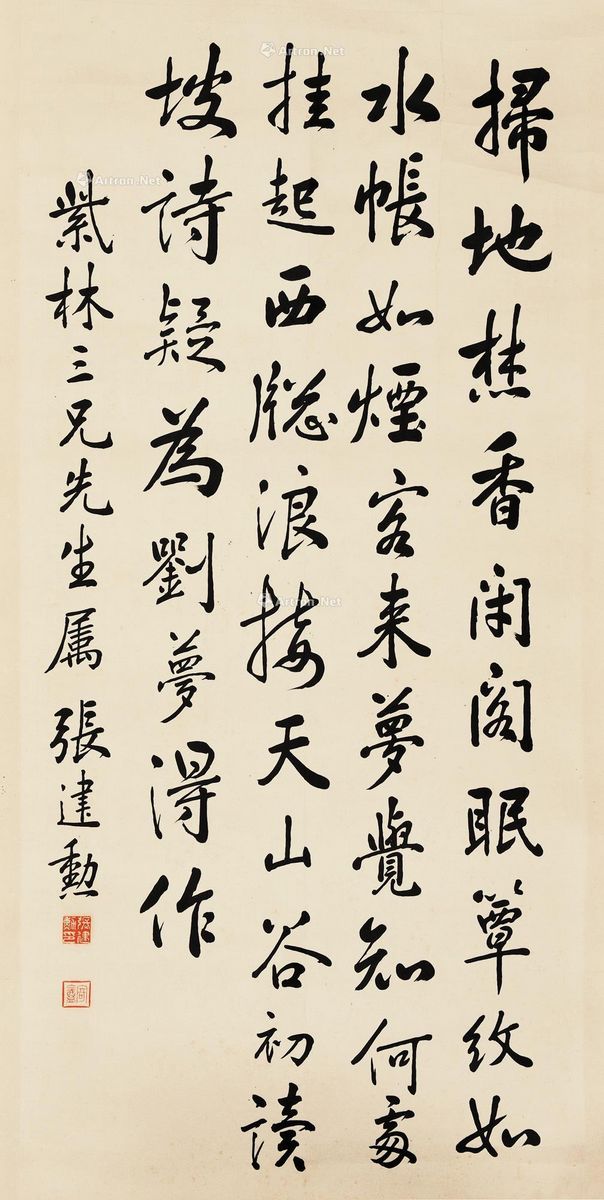 掃地焚香閉閣眠簟紋如
水帳如煙客来夢覺知何處
挂起西牕浪接天山谷初讀
坡詩疑為劉夢得作
紫林三兄先生属張建勳
Artron.Net
Artron.Net
Artron.Net